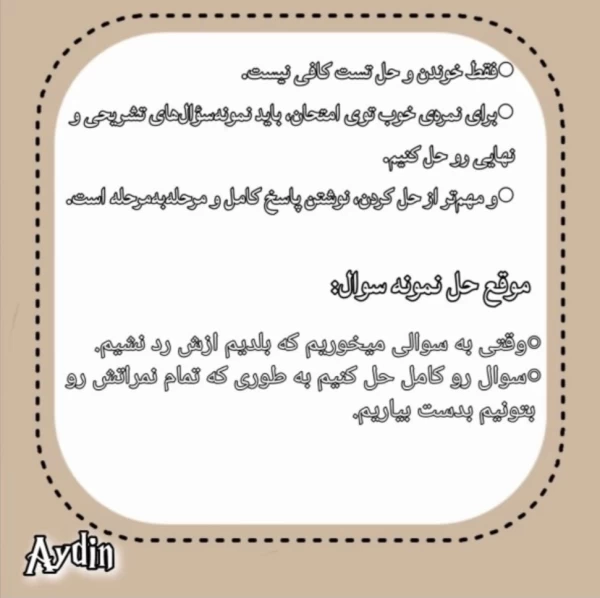 ○فقط خوندن و حل تست کافی نیست.
○برای نمره‌ی خوب توی امتحان، باید نمونه‌سؤال‌های تشریحی و
نهایی رو حل کنیم.
○و مهم‌تر از حل کردن، نوشتن پاسخ کامل و مرحله‌به‌مرحله است.
موقع حل نمونه سوال:
○وقتی به سوالی میخوریم که بلدیم ازش رد نشیم.
○سوال رو کامل حل کنیم به طوری که تمام نمراتش رو
بتونیم بدست بیاریم.
Aydin